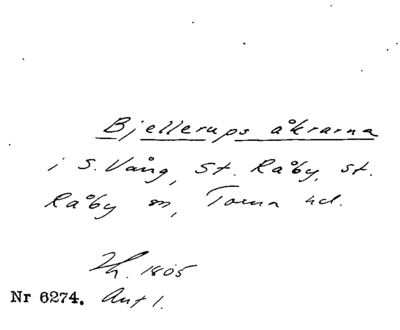 Bjellerups åkrarna
i S. Vång, St. Råby, St.
Råby sn, Torna hd.
Lh. 1805
Nr 6274. Akt 1.